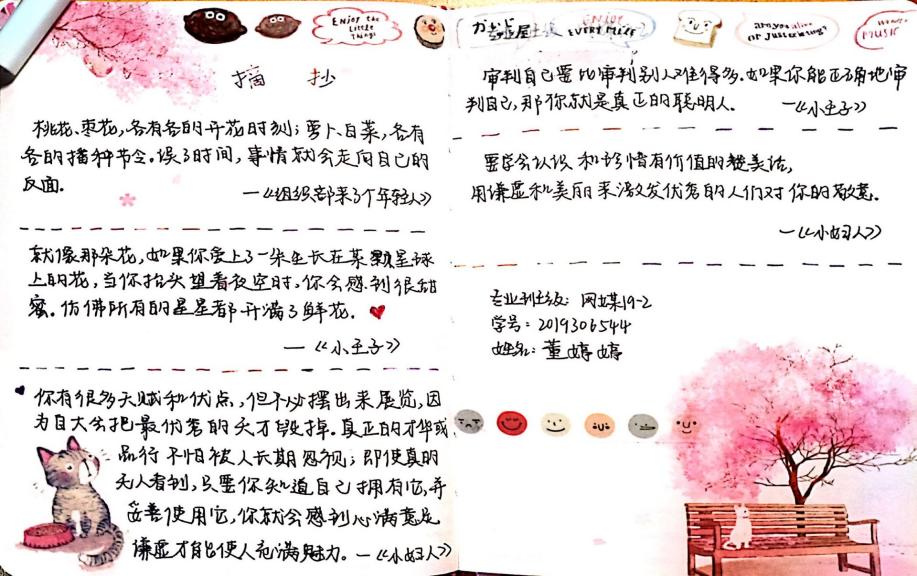 ENJOY the
LITTLE
THINGS
摘 抄
桃花、枣花,各有各的开花时刻;萝卜、白菜,各有
各的播种节令。误了时间,事情就会走向自己的
反面。
—《组织部来了个年轻人》
就像那朵花,如果你爱上了一朵生长在某颗星球
上的花,当你抬头望着夜空时,你会感到很甜
蜜。仿佛所有的星星都开满了鲜花。
—《小王子》
你有很多天赋和优点,但不必摆出来展览,因
为自大会把最优秀的天才毁掉。真正的才华或
品行不怕被人长期忽视;即使真的
无人看到,只要你知道自己拥有它,并
妥善使用它,你就会感到心满意足
谦虚才能使人充满魅力。—《小妇人》
ENJOY
EVERY MEAL
are you alive
OR JUST existing?
MUSIC
审判自己要比审判别人难得多。如果你能正确地审
判自己,那你就是真正的聪明人。 —《小王子》
要学会认识和珍惜有价值的赞美话,
用谦虚和美丽来激发优秀的人们对你的敬意。
—《小妇人》
专业班级:网媒19-2
学号:2019306544
姓名:董婷婷